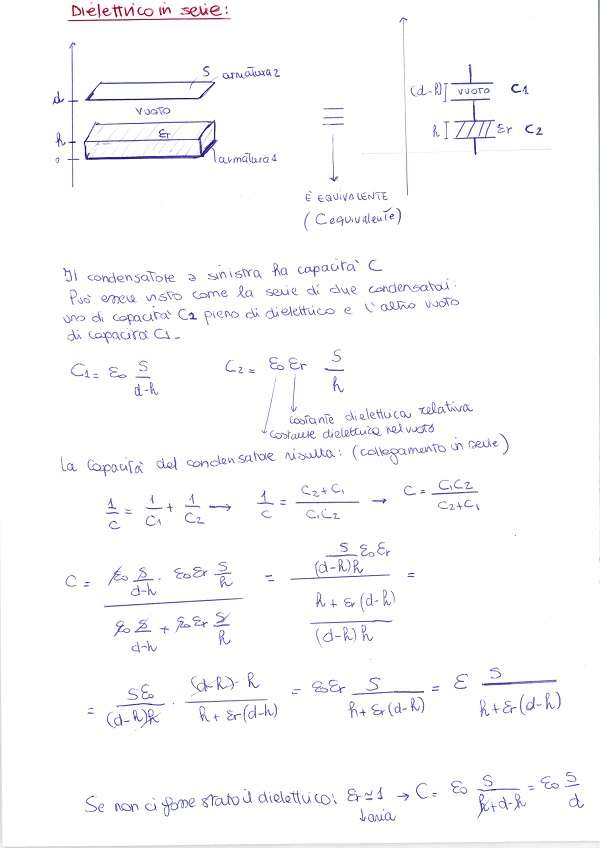 Dielettrico in serie:
S armatura 2
d
VUOTO
h
εr
0
armatura 1
È EQUIVALENTE
(Cequivalente)
(d-h) VUOTO C1
h εr C2
Il condensatore a sinistra ha capacità C
Può essere visto come la serie di due condensatori:
uno di capacità C2 pieno di dielettrico e l'altro vuoto
di capacità C1.
C1 = ε0 S/(d-h)   C2 = ε0 εr S/h
costante dielettrica relativa
costante dielettrica nel vuoto
la capacità del condensatore risulta: (collegamento in serie)
1/C = 1/C1 + 1/C2 → 1/C = (C2+C1)/(C1C2) → C = C1C2/(C2+C1)
C = (ε0 S/(d-h) · ε0 εr S/h) / (ε0 S/(d-h) + ε0 εr S/h) = (S/((d-h)h) ε0 εr) / ((h + εr(d-h))/((d-h)h)) =
= Sε0/((d-h)h) · (d-h)·h/(h + εr(d-h)) = ε0 εr S/(h + εr(d-h)) = ε S/(h + εr(d-h))
Se non ci fosse stato il dielettrico: εr ≃ 1 → C = ε0 S/(h+d-h) = ε0 S/d
↓aria